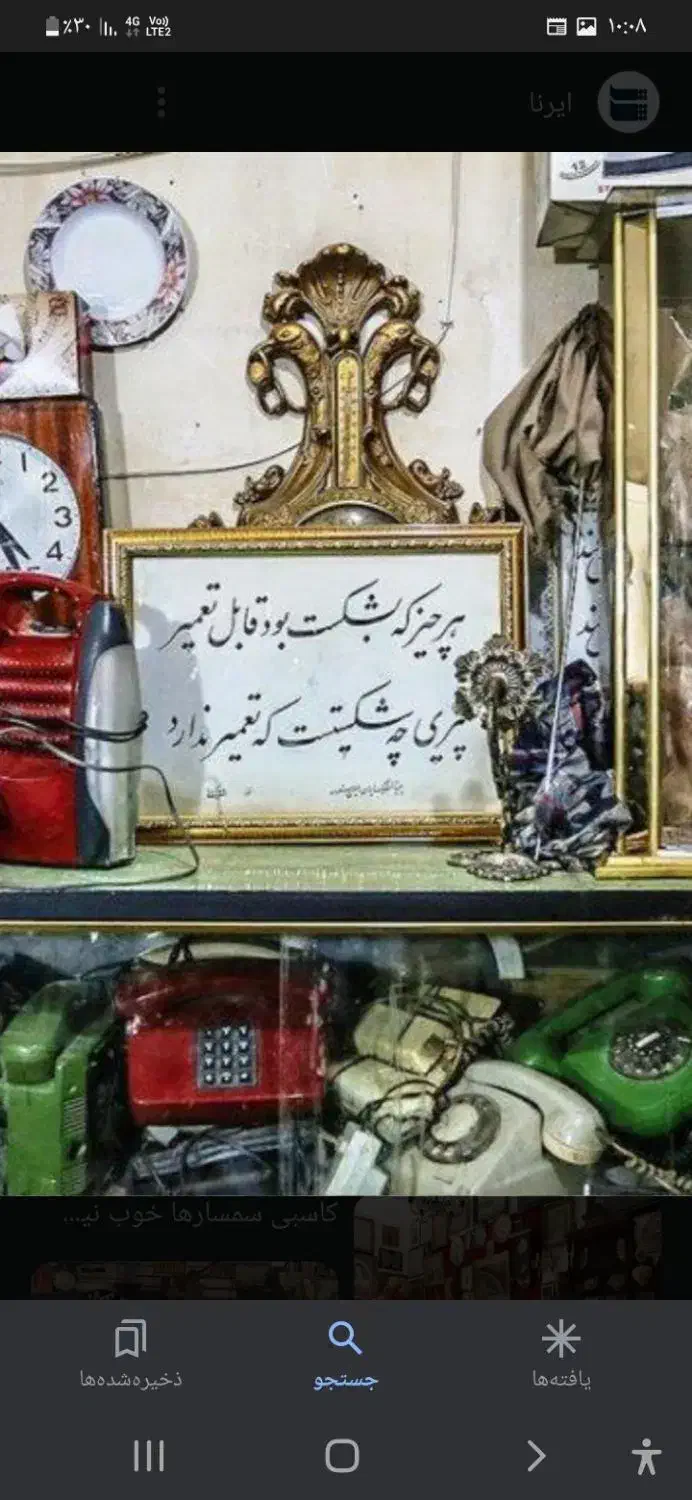 ۱۰:۰۸
4G
Vo))
LTE2
٪۳۰
ایرنا
1
2
3
4
هر چیز که بشکست بود قابل تعمیر
پیری چه شکیتست که تعمیر ندارد
کاسبی سمسارها خوب نیـ...
یافته‌ها
جستجو
ذخیره‌شده‌ها